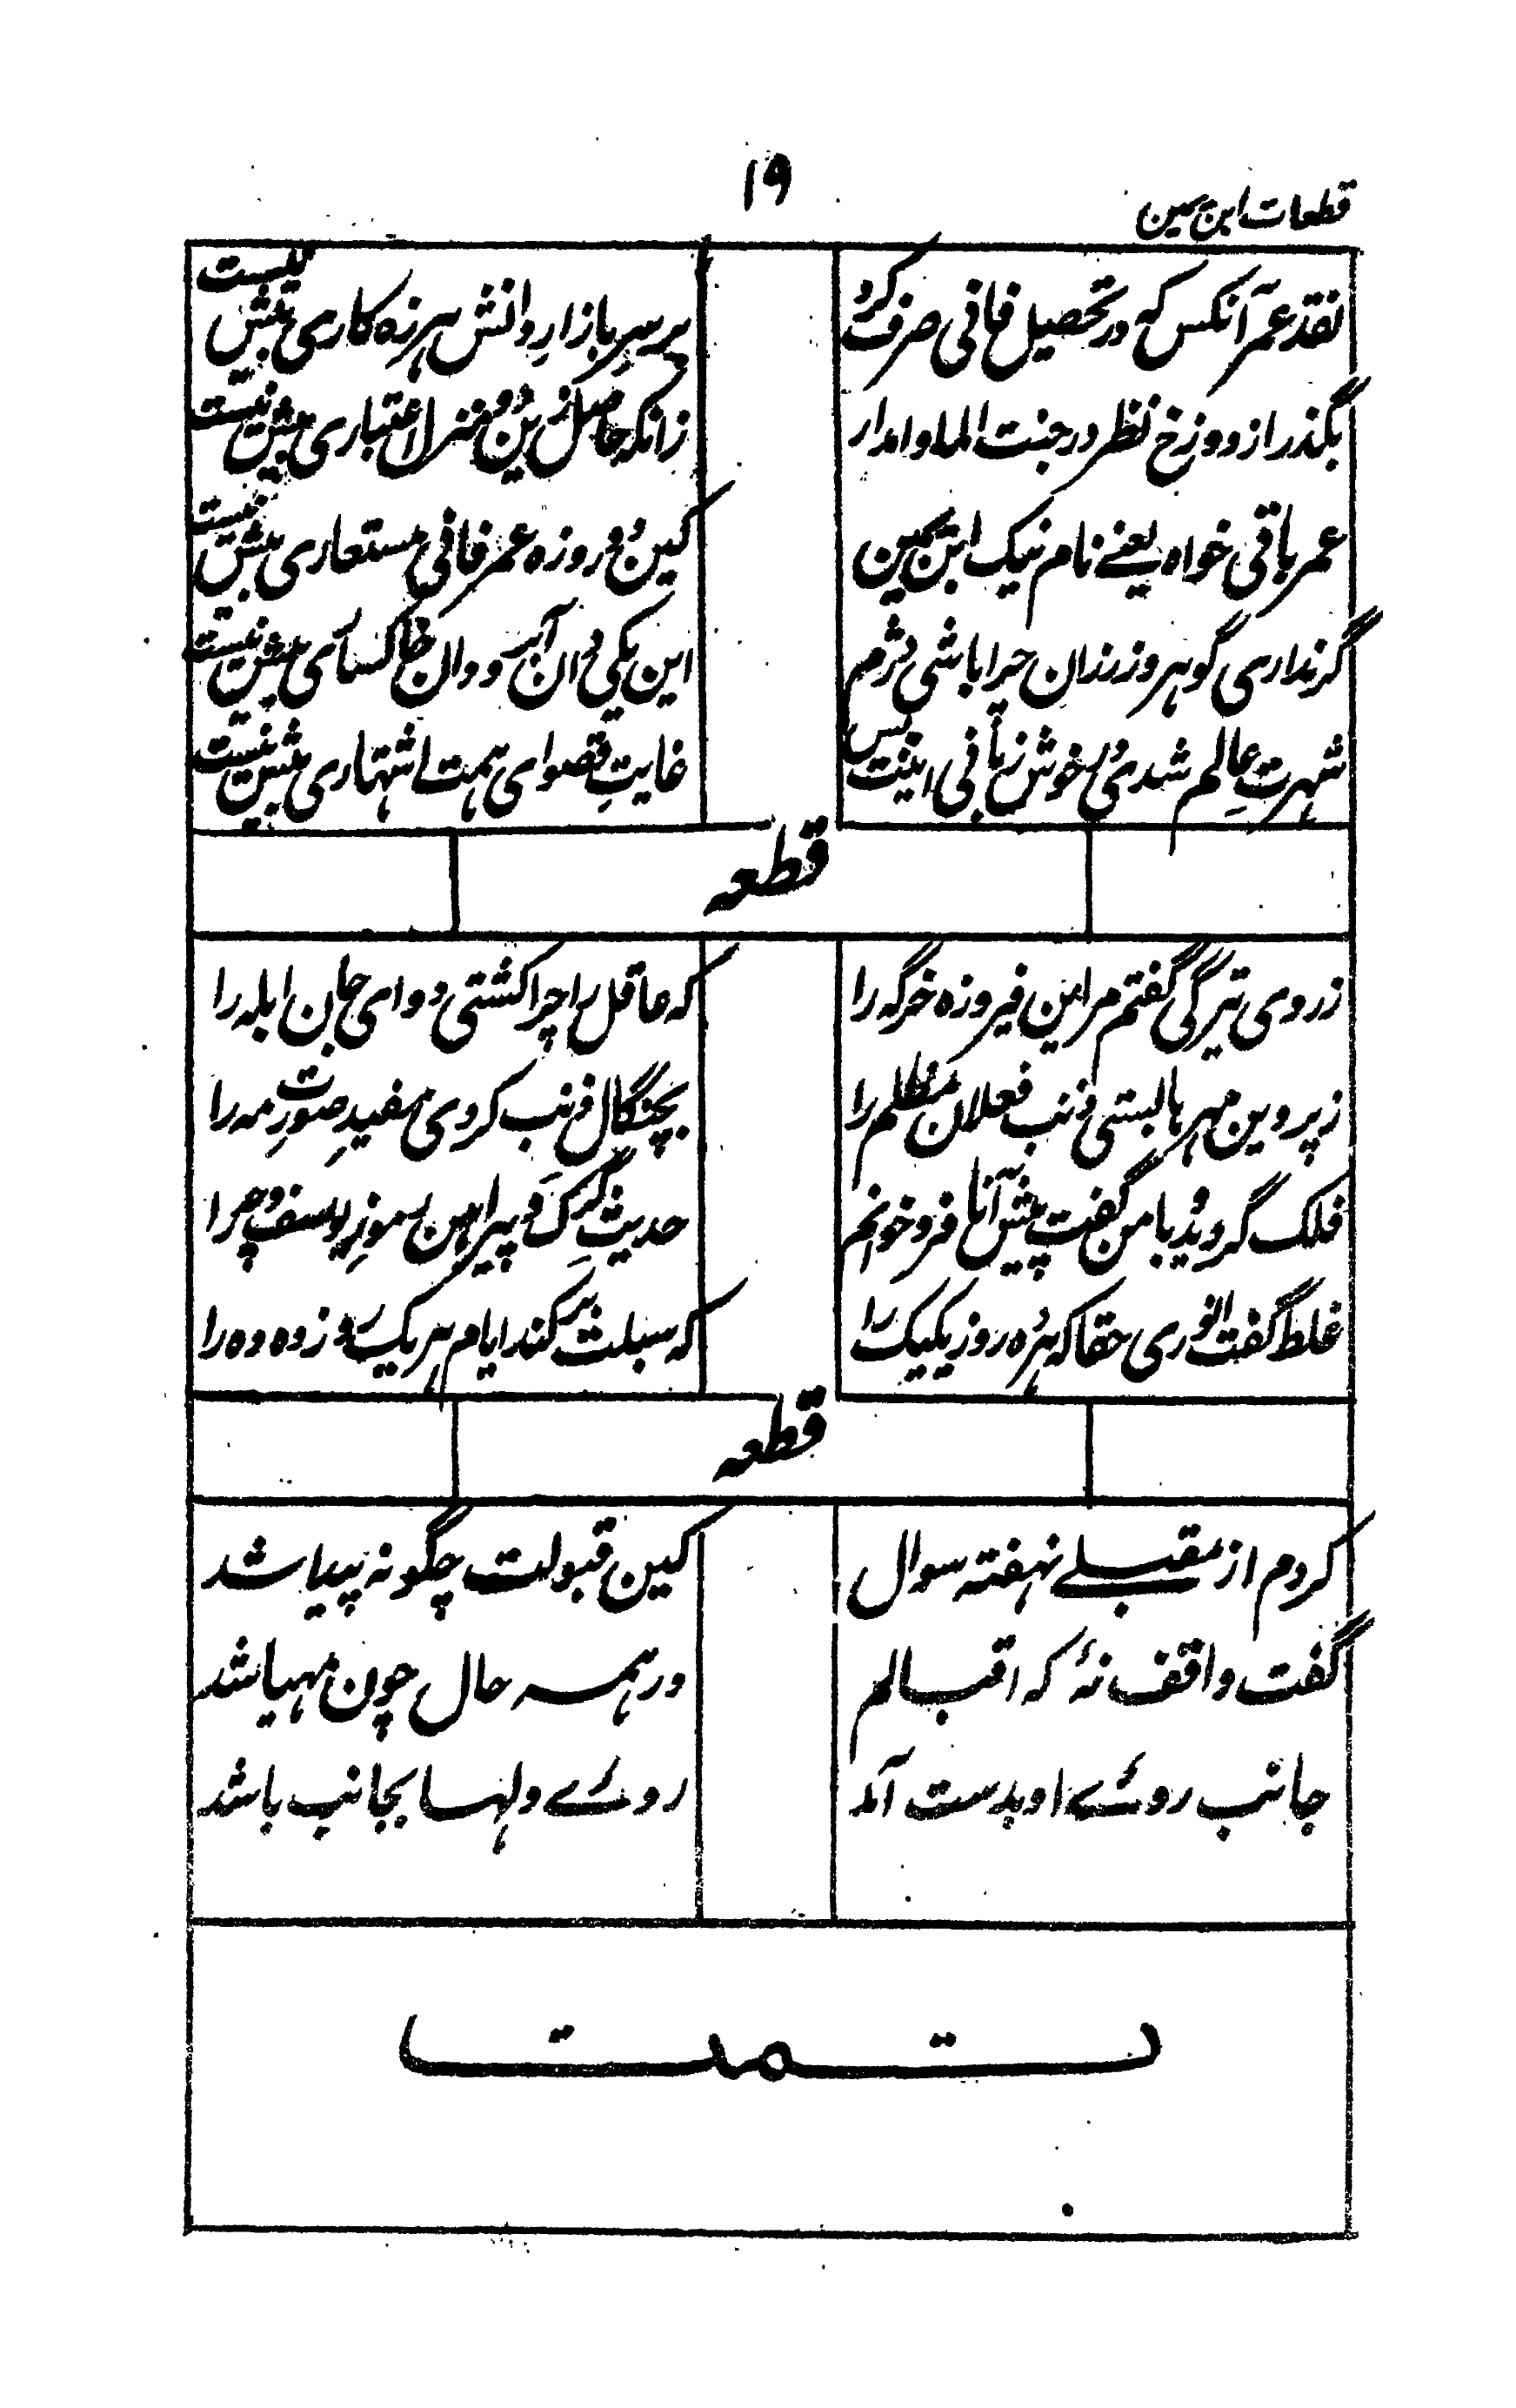 ۱۹
قطعات ابن یمین
نقد عمر آنکس که در تحصیل فانی صرف کرد
بر سرِ بازارِ دانش هرزه کاری بیش نیست
بگذر از دوزخ نظر در جنت الماوا مدار
زانکه حاصل زین دو منزل اعتباری بیش نیست
عمر باقی خواه یعنے نام نیک ابن یمین
کین دو روزه عمر فانی مستعاری بیش نیست
گر نداری گوهر و زر زان چرا باشی دژم
این یکی دان آب و دان خاکساری بیش نیست
شهرتِ عالم شدی خوش زبانی اینت بس
غایتِ قصوای همت اشتهاری بیش نیست
قطعه
ز روی تیرگی گفتم مر این فیروزه خرگه را
که عاقل را چرا کشتی دوای جان ابله را
ز پروین مهرها بستی ذنب فعلان مظلم را
بچنگال ذنب کردی مفیدِ صورتِ مه را
فلک گردید با من گفت پیش آنا فرو خوانم
حدیث گرگ و پیراهن رموز یوسف و چه را
غلط گفت انوری حقا که هر ده روز یکیک را
که سبلت بر کند ایام هر یک روز ده ده را
قطعه
کردم از مقبلے نهفته سوال
کین قبولت چگونه پیدا شد
گفت واقف نهٔ که اقبالم
در همه حال چون مهیا شد
جانب روئے او بدست آمد
روئے دلها بجانب باشد
تمت